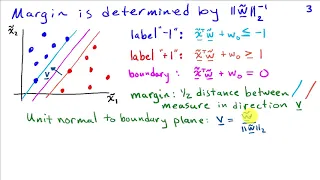 Margin is determined by ||w̃||₂⁻¹
3
x̃₂
label "-1": x̃ᵀw̃ + w₀ ≤ -1
label "+1": x̃ᵀw̃ + w₀ ≥ 1
boundary: x̃ᵀw̃ + w₀ = 0
v
x̃₁
margin: 1/2 distance between / /
measure in direction v
Unit normal to boundary plane: v = w̃ / ||w̃||₂